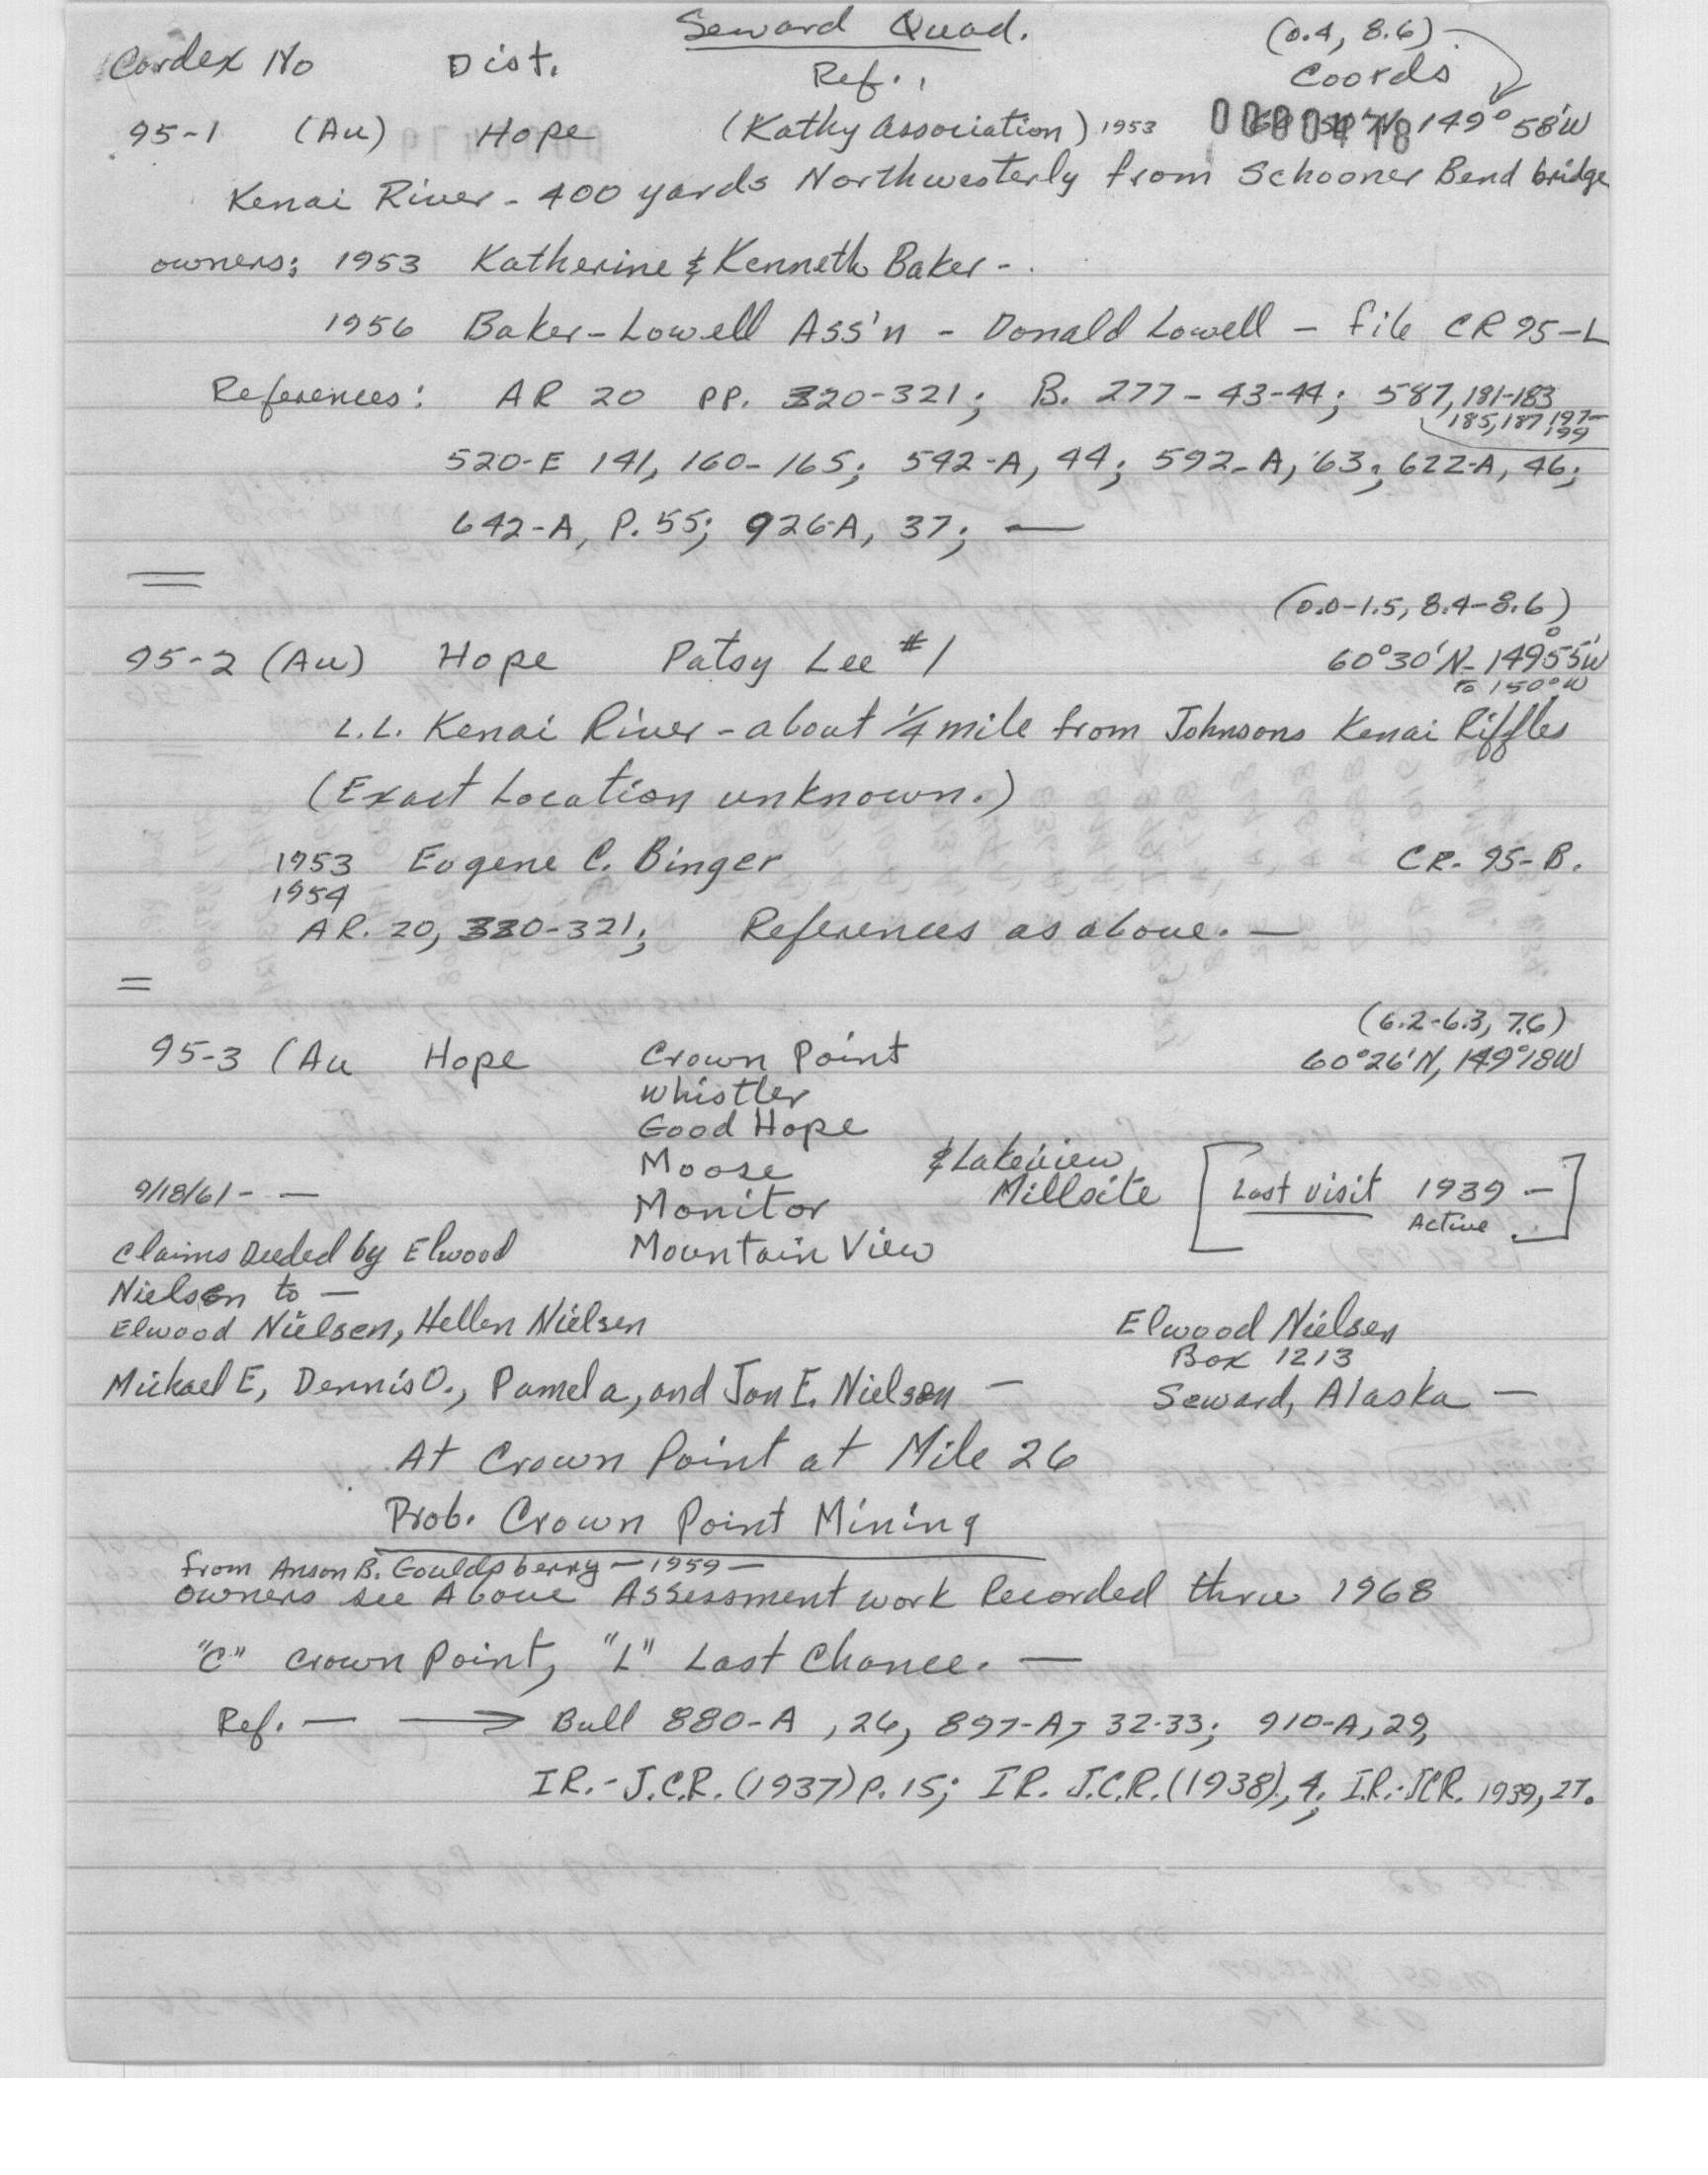 Seward Quad. (0.4, 8.6)
Cardex No Dist. Ref., Coords
95-1 (Au) Hope (Kathy Association) 1953 149° 58'W
Kenai River - 400 yards Northwesterly from Schooner Bend bridge
owners; 1953 Katherine & Kenneth Baker -.
1956 Baker-Lowell Ass'n - Donald Lowell - file CR 95-L
References: AR 20 pp. 320-321; B. 277-43-44; 587, 181-183
185, 187, 197-199
520-E 141, 160-165; 542-A, 44; 592-A, 63; 622-A, 46;
642-A, P. 55; 926-A, 37; —
(0.0-1.5, 8.4-8.6)
95-2 (Au) Hope Patsy Lee #1 60°30'N- 149°55'W
to 150°W
L.L. Kenai River - about 1/4 mile from Johnsons Kenai Riffles
(Exact Location unknown.)
1953 Eugene C. Binger CR. 95-B.
1954
AR. 20, 320-321; References as above. —
(6.2-6.3, 7.6)
95-3 (Au Hope Crown Point 60°26'N, 149°18W
Whistler
Good Hope
Moose & Lakeview
9/18/61 - — Monitor Millsite [Last visit 1939 —
Active .]
Claims Deeded by Elwood Mountain View
Nielsen to —
Elwood Nielsen, Hellen Nielsen Elwood Nielsen
Box 1213
Mickael E, Dennis O., Pamela, and Jon E. Nielsen — Seward, Alaska —
At Crown Point at Mile 26
Prob. Crown Point Mining
from Anson B. Gouldsberry — 1959 —
owners see Above Assessment work Recorded thru 1968
"C" Crown Point, "L" Last Chance. —
Ref. — → Bull 880-A, 26, 897-A, 32-33; 910-A, 29,
IR.- J.C.R. (1937) P. 15; IR. J.C.R. (1938), 4; I.R.-JCR. 1939, 27.